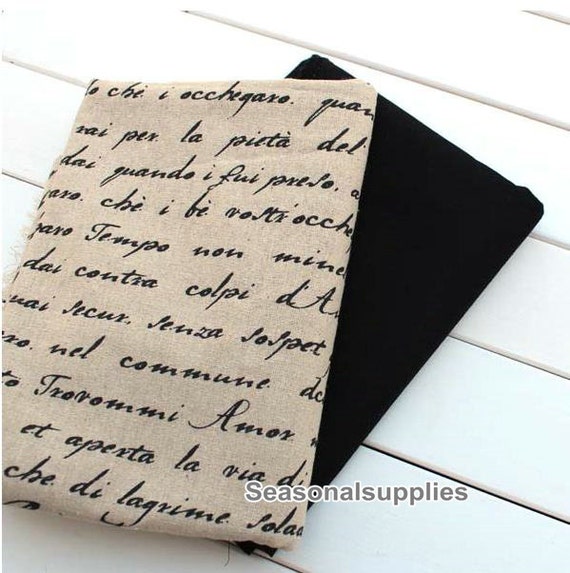 o chè i occhegaro. quan
rai per. la pietà del
dai quando i fui preso, a
garo. chè i bè vostr'ocche
garo Tempo non mine
dai contra colpi d'A
uai secur. senza sospet
ro. nel commune. do
to Trovommi Amor
et aperta la via di
che. di lagrime. solaa
Seasonalsupplies